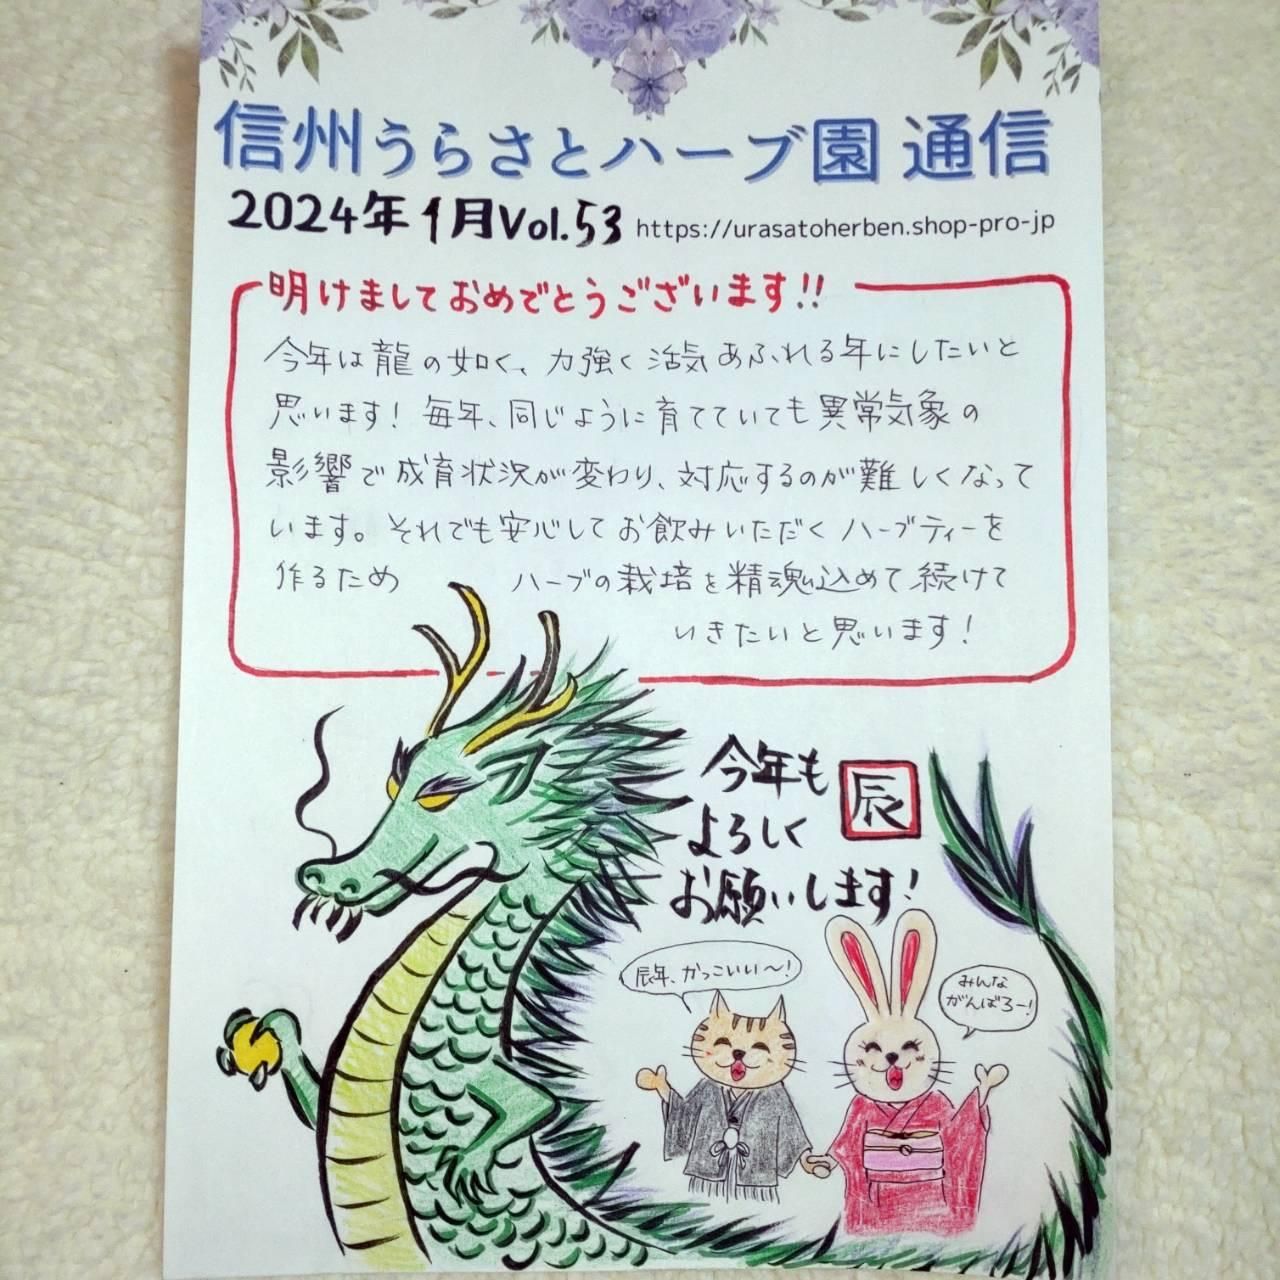 信州うらさとハーブ園 通信
2024年 1月 Vol.53 https://urasatoherben.shop-pro-jp
明けましておめでとうございます!!
今年は龍の如く、力強く活気あふれる年にしたいと
思います! 毎年、同じように育てていても異常気象の
影響で成育状況が変わり、対応するのが難しくなって
います。それでも安心してお飲みいただくハーブティーを
作るため ハーブの栽培を精魂込めて続けて
いきたいと思います!
今年も
よろしく
お願いします!
辰
辰年、かっこいい～!
みんな
がんばろー!